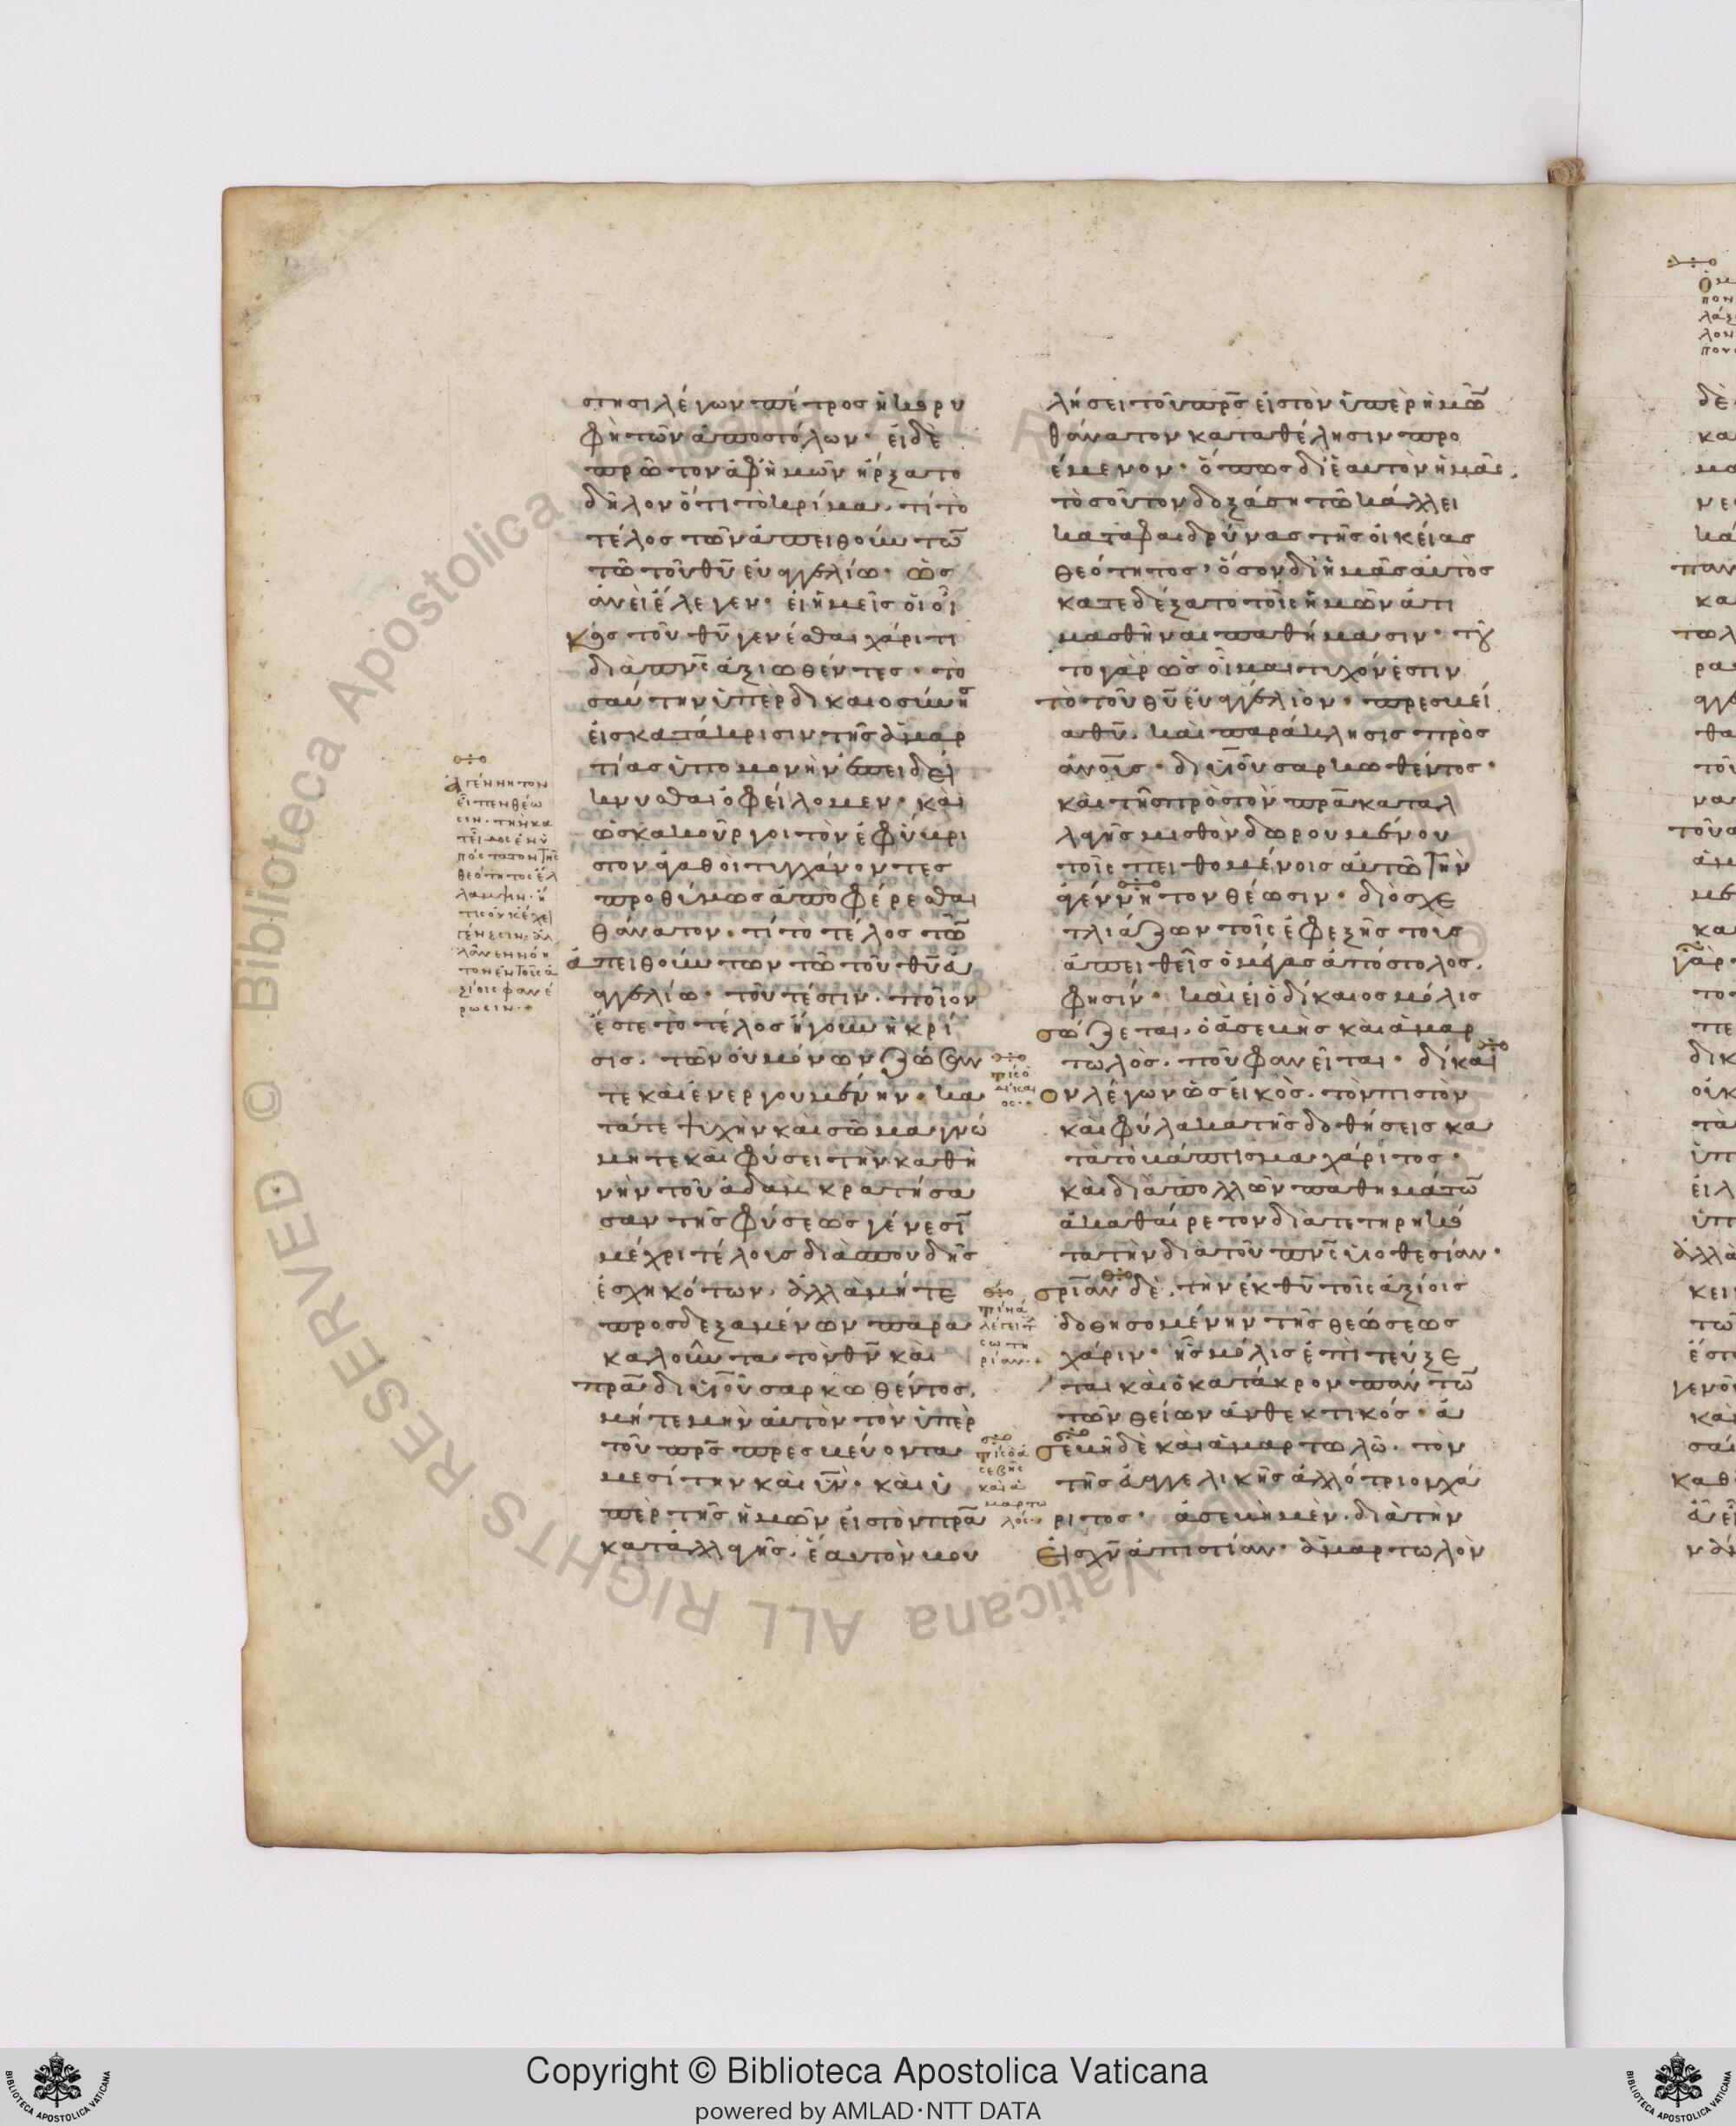 στησι λέγων πέτρος ἡ κορυ
φὴ τῶν ἀποστόλων· εἰ δὲ
πρῶτον ἀφ' ἡμῶν ἤρξατο
δῆλον ὅτι τὸ κρίμα. τί τὸ
τέλος τῶν ἀπειθούντω̅
τῶ τοῦ θυ̅ εὐαγγελίω· ὡς
ἂν εἰ ἔλεγεν· εἰ ἡμεῖς οἱ οἶ
κος τοῦ θυ̅ γενέσθαι χάριτι
διὰ πνς̅ ἀξιωθέντες· το
σαύτην ὑπὲρ δικαιοσύνης
εἰς κατάκρισιν τῆς ἁμαρ
τίας ὑπομονὴν ἐπιδεί
κνυσθαι ὀφείλομεν· καὶ
ὡς κακοῦργοι τὸν ἐφύβρι
στον ἀγαθοὶ τυγχάνοντες
προθύμως ἀποφέρεσθαι
θάνατον· τί τὸ τέλος τῶ̅
ἀπειθούντων τῶ τοῦ θυ̅ εὐ
αγγελίω· τουτέστιν. ποῖον
ἔσται τὸ τέλος ἤγουν ἡ κρί
σις. τῶν οὐ μόνων ζῶσαν
τε καὶ ἐνεργουμένην· κα
τά τε ψυχὴν καὶ σῶμα γνώ
μη τε καὶ φύσει τὴν καθ' ἡ
νὴν τοῦ ἀδὰμ κρατήσα
σαν τῆς φύσεως γένεσι̅
μέχρι τέλους διὰ σπουδῆς
ἐσχηκότων. ἀλλὰ μήτε
προσδεξαμένων παρα
καλοῦντα τὸν θν̅ καὶ
πρα̅ δι' υἱοῦ σαρκωθέντος.
μήτε μὴν αὐτὸν τὸν ὑπὲρ
τοῦ πρς̅ πρεσβεύοντα
μεσίτην καὶ υν̅· καὶ ὑ
πὲρ τῆς ἡμῶν εἰς τὸν πρα̅
καταλλαγῆς. ἑαυτὸν βου
λήσει τοῦ πρς̅ εἰς τὸν ὑπὲρ ἡμῶ̅
θάνατον κατὰ θέλησιν προ
έμενον· ὅπως δι' ἑαυτὸν ἡμᾶς.
τοσοῦτον δοξάση τῶ κάλλει
καταφαιδρύνας τῆς οἰκείας
θεότητος· ὅσον δι' ἡμᾶς αὐτὸς
κατεδέξατο τοῖς ἡμῶν ἀτι
μασθῆναι παθήμασιν· τοῦ
το γὰρ ὡς οἶμαι τυχόν ἐστιν
τὸ τοῦ θυ̅ εὐαγγέλιον· πρεσβεί
α θυ̅. καὶ παράκλησις πρὸς
ἀνο̅υς· δι' υἱοῦ σαρκωθέντος·
καὶ τῆς πρὸς τὸν πρα̅ καταλ
λαγῆς μισθὸν δωρουμένου
τοῖς πειθομένοις αὐτῶ τὴν
ἀγέννητον θέωσιν· διὸ σχε
τλιάζων τοῖς ἐφεξῆς τους
ἀπειθεῖς ὁ μέγας ἀπόστολος.
φησίν· καὶ εἰ ὁ δίκαιος μόλις
σώζεται. ὁ ἀσεβὴς καὶ ἁμαρ
τωλὸς. ποῦ φανεῖται· δίκαι
ον λέγων ὡς εἰκὸς. τὸν πιστὸν
καὶ φύλακα τῆς δοθήσεις κα
τὰ τὸ βάπτισμα χάριτος·
καὶ διὰ πολλῶν παθημάτω̅
ἀκαθαίρετον διατετηρηκό
τα τὴν διὰ τοῦ πνς̅ υἱοθεσίαν·
σρίαν̅ δὲ. τὴν ἐκ θυ̅ τοῖς ἀξίοις
δοθησομένην τῆς θεώσεως
χάριν· ἧς μόλις ἐπιτεύξε
ται καὶ ὁ κατάκρον πάντω̅
τῶν θείων ἀνθεκτικός· ἀ
σεβῆ δὲ καὶ ἁμαρτωλὸ̅. τὸν
τῆς εὐαγγελικῆς ἀλλότριον χά
ριτος· ἀσεβῆ μὲν. διὰ τὴν
εἰς χν̅ ἀπιστίαν· ἁμαρτωλὸν
ἀγέννητον
εἶπεν θέω
σιν· τὴν κα
τ' εἶδος ἐν ὑ
ποστάτον τῆς
θεότητος ἔλ
λαμψιν· ἥ
τις οὐκ ἔχει
γένεσιν· ἀλ
λ' ἀνεννόη
τον ἐν τοῖς ἀ
ξίοις φανέ
ρωσιν·+
τίς ὁ
δίκαι
ος·
τίνα
λέγει
σωτη
ρίαν·
τίς ὁ ἀ
σεβὴς
καὶ ἁ
μαρτω
λός·
Copyright © Biblioteca Apostolica Vaticana
powered by AMLAD·NTT DATA